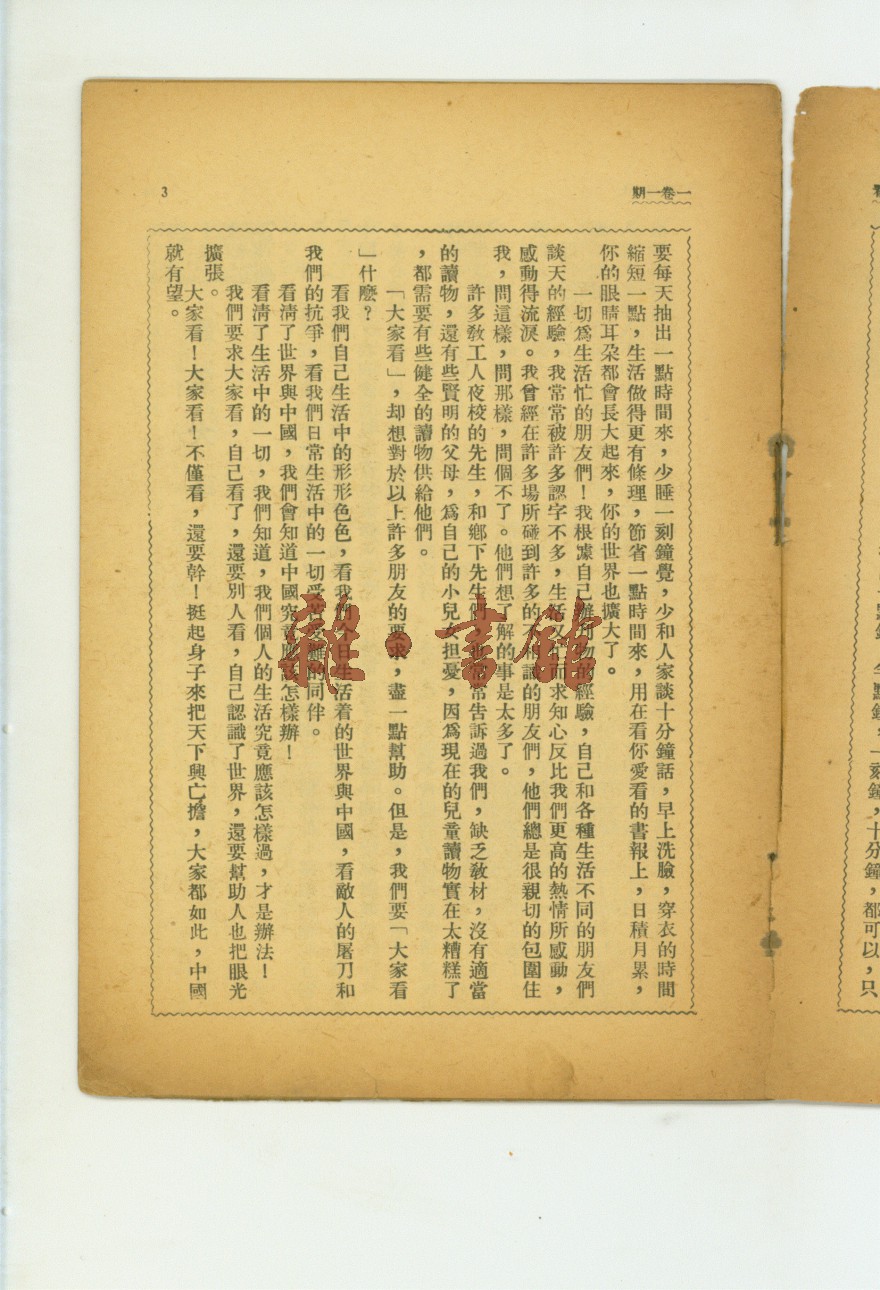 期一卷一
3
要每天抽出一點時間來，少睡一刻鐘覺，少和人家談十分鐘話，早上洗臉，穿衣的時間
縮短一點，生活做得更有條理，節省一點時間來，用在看你愛看的書報上，日積月累，
你的眼睛耳朶都會長大起來，你的世界也擴大了。
一切爲生活忙的朋友們！我根據自己辦刊物的經驗，自己和各種生活不同的朋友們
談天的經驗，我常常被許多認字不多，生活又忙而求知心反比我們更高的熱情所感動，
感動得流淚。我曾經在許多場所碰到許多的不相識的朋友們，他們總是很親切的包圍住
我，問這樣，問那樣，問個不了。他們想了解的事是太多了。
許多敎工人夜校的先生，和鄉下先生們，也常常告訴過我們，缺乏敎材，沒有適當
的讀物，還有些賢明的父母，爲自己的小兒女担憂，因爲現在的兒童讀物實在太糟糕了
，都需要有些健全的讀物供給他們。
「大家看」，却想對於以上許多朋友的要求，盡一點幫助。但是，我們要「大家看
」什麽？
看我們自己生活中的形形色色，看我們今日生活着的世界與中國，看敵人的屠刀和
我們的抗爭，看我們日常生活中的一切受苦受難的同伴。
看淸了世界與中國，我們會知道中國究竟應該怎樣辦！
看淸了生活中的一切，我們知道，我們個人的生活究竟應該怎樣過，才是辦法！
我們要求大家看，自己看了，還要別人看，自己認識了世界，還要幫助人也把眼光
擴張。
大家看！大家看！不僅看，還要幹！挺起身子來把天下興亡擔，大家都如此，中國
就有望。
雜·書館
一刻鐘，十分鐘，都可以，只